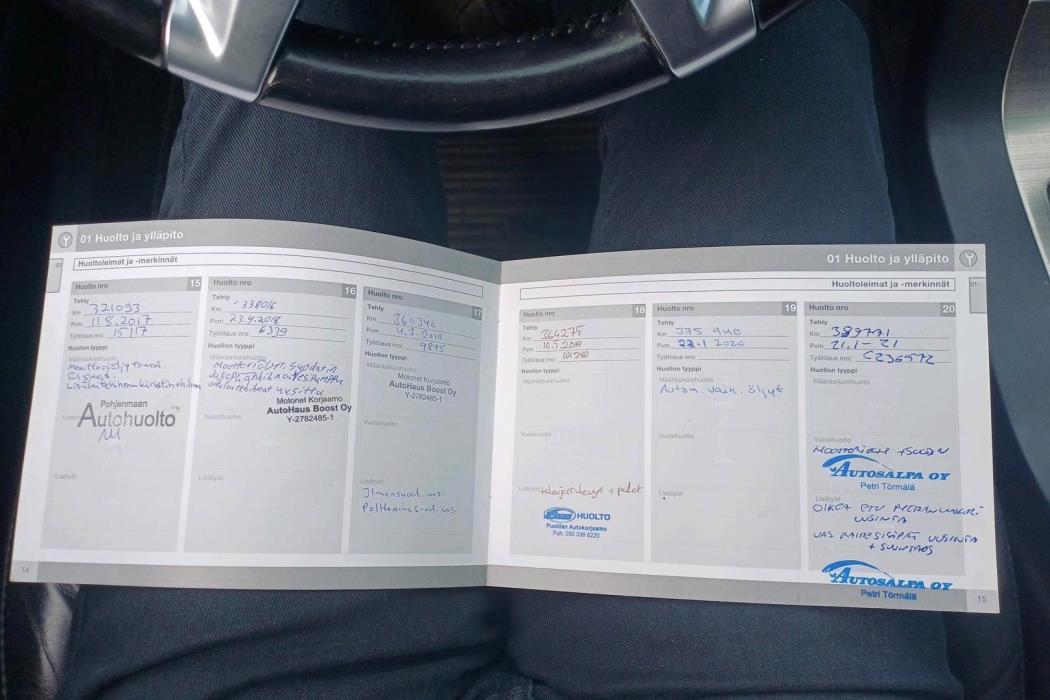 01 Huolto ja ylläpito
Huoltoleimat ja -merkinnät
Huolto nro 15
Tehty
Km 321093
Pvm 11.8.2017
Työtilaus nro: 15117
Huollon tyyppi
Määräaikaishuolto
Moottoriöljyt
Pohjanmaan
Autohuolto
Lisätyöt
14
Huolto nro 16
Tehty
Km 338016
Pvm 23.4.2018
Työtilaus nro: 6339
Huollon tyyppi
Määräaikaishuolto
Moottoriöljyt, suodatin
Motonet Korjaamo
AutoHaus Boost Oy
Y-2782485-1
Vuosihuolto
Lisätyöt
Huolto nro 17
Tehty
Km 360340
Pvm 4.3.2019
Työtilaus nro: 9895
Huollon tyyppi
Määräaikaishuolto
Motonet Korjaamo
AutoHaus Boost Oy
Y-2782485-1
Vuosihuolto
Lisätyöt
Ilmansuod. vs.
Polttoainesuod. vs.
01 Huolto ja ylläpito
Huoltoleimat ja -merkinnät
01
Huolto nro 18
Tehty
Km 364275
Pvm 10.7.2019
Työtilaus nro:
Huollon tyyppi
Määräaikaishuolto
Vuosihuolto
Lisätyöt + palat
HUOLTO
Puotilan Autokorjaamo
Puh. 050 336 6220
Huolto nro 19
Tehty
Km 375 940
Pvm 22.1 2020
Työtilaus nro:
Huollon tyyppi
Määräaikaishuolto
Autom. vaih. öljyt
Vuosihuolto
Lisätyöt
Huolto nro 20
Tehty
Km 389771
Pvm 21.1-21
Työtilaus nro: C236572
Huollon tyyppi
Määräaikaishuolto
Vuosihuolto
AUTOSALPA OY
Petri Törmälä
Lisätyöt
OIKEA ETU
UUSINTA
VAS UUSINTA
+ SUUNTAUS
AUTOSALPA OY
Petri Törmälä
15